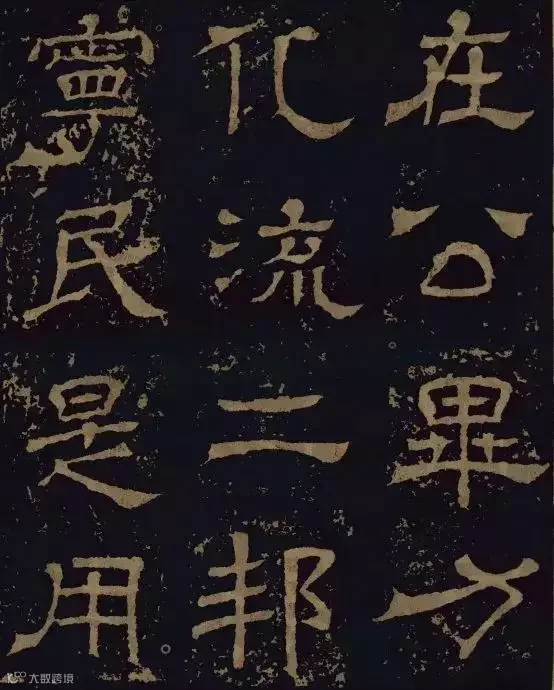 在公畢力
化流二邦
寧民是用
大数跨境